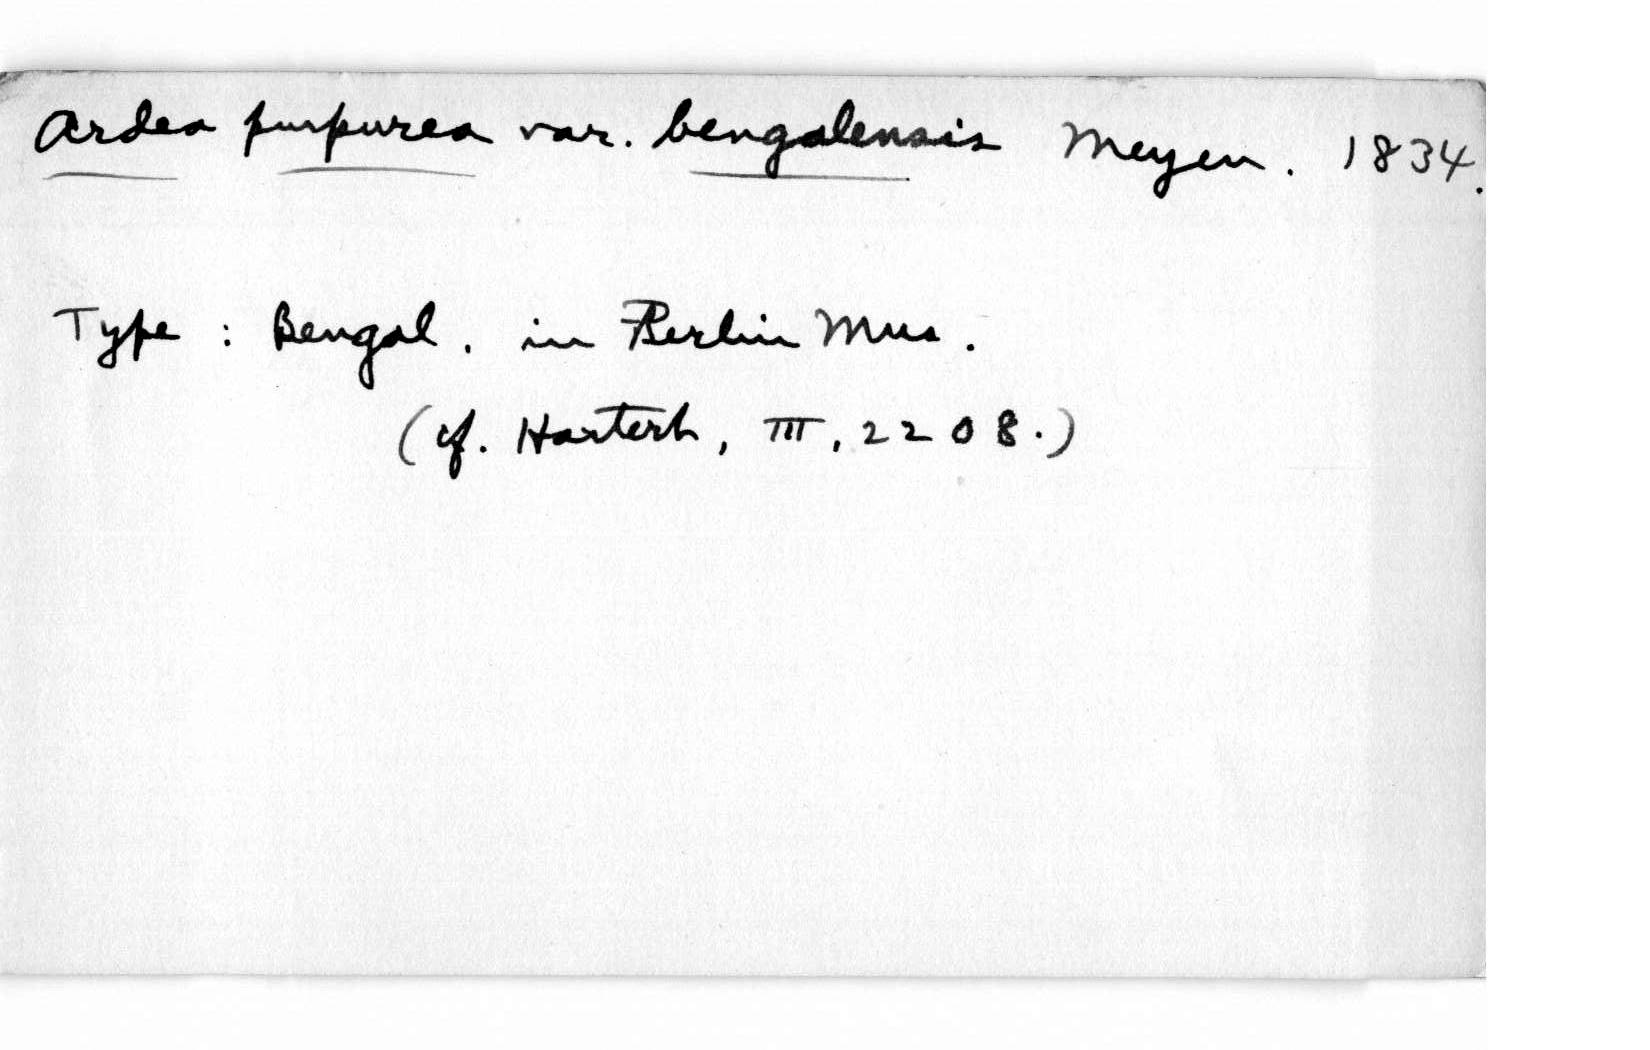 Ardea purpurea var. bengalensis Meyen. 1834.
Type : Bengal. in Berlin Mus.
(cf. Hartert, III, 2208.)